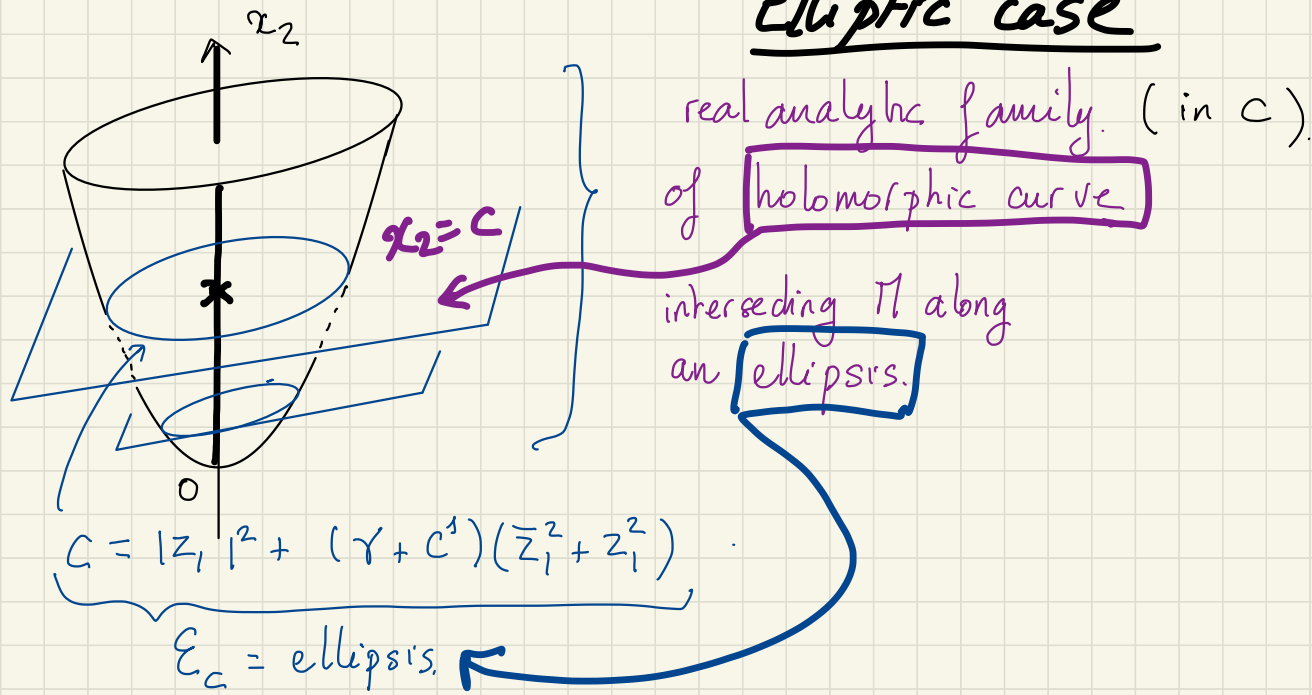 Elliptic case
x₂
real analytic family. (in C).
of holomorphic curve
x₂ = C
intersecting M along
an ellipsis.
0
C = |z₁|² + (γ + C^s)(z̄₁² + z₁²)
ℰ_C = ellipsis.